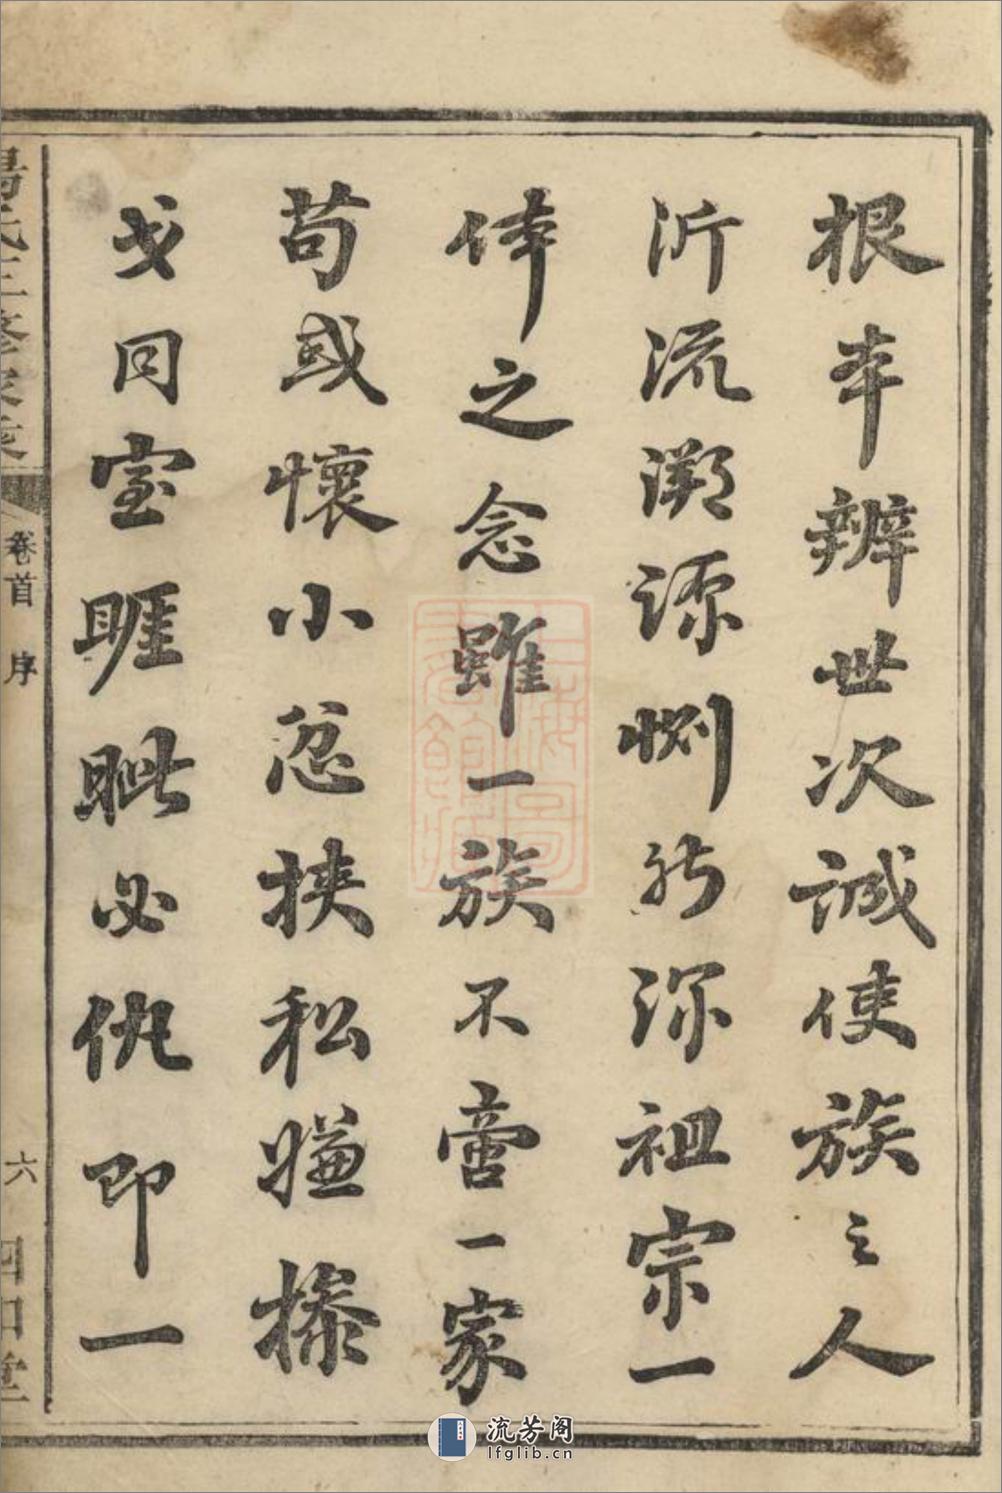 根本辨世次誠使族之人
沂流溯源惻然深祖宗一
体之念雖一族不啻一家
苟或懷小忿挾私嫌操
戈同室睚眦必仇即一
卷首 序
六
流芳阁
lfglib.cn